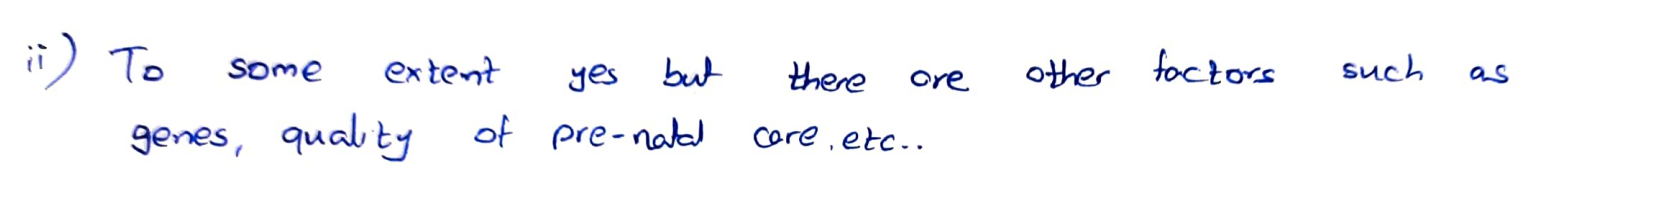 ii) To some extent yes but there are other factors such as
genes, quality of pre-natal care, etc..